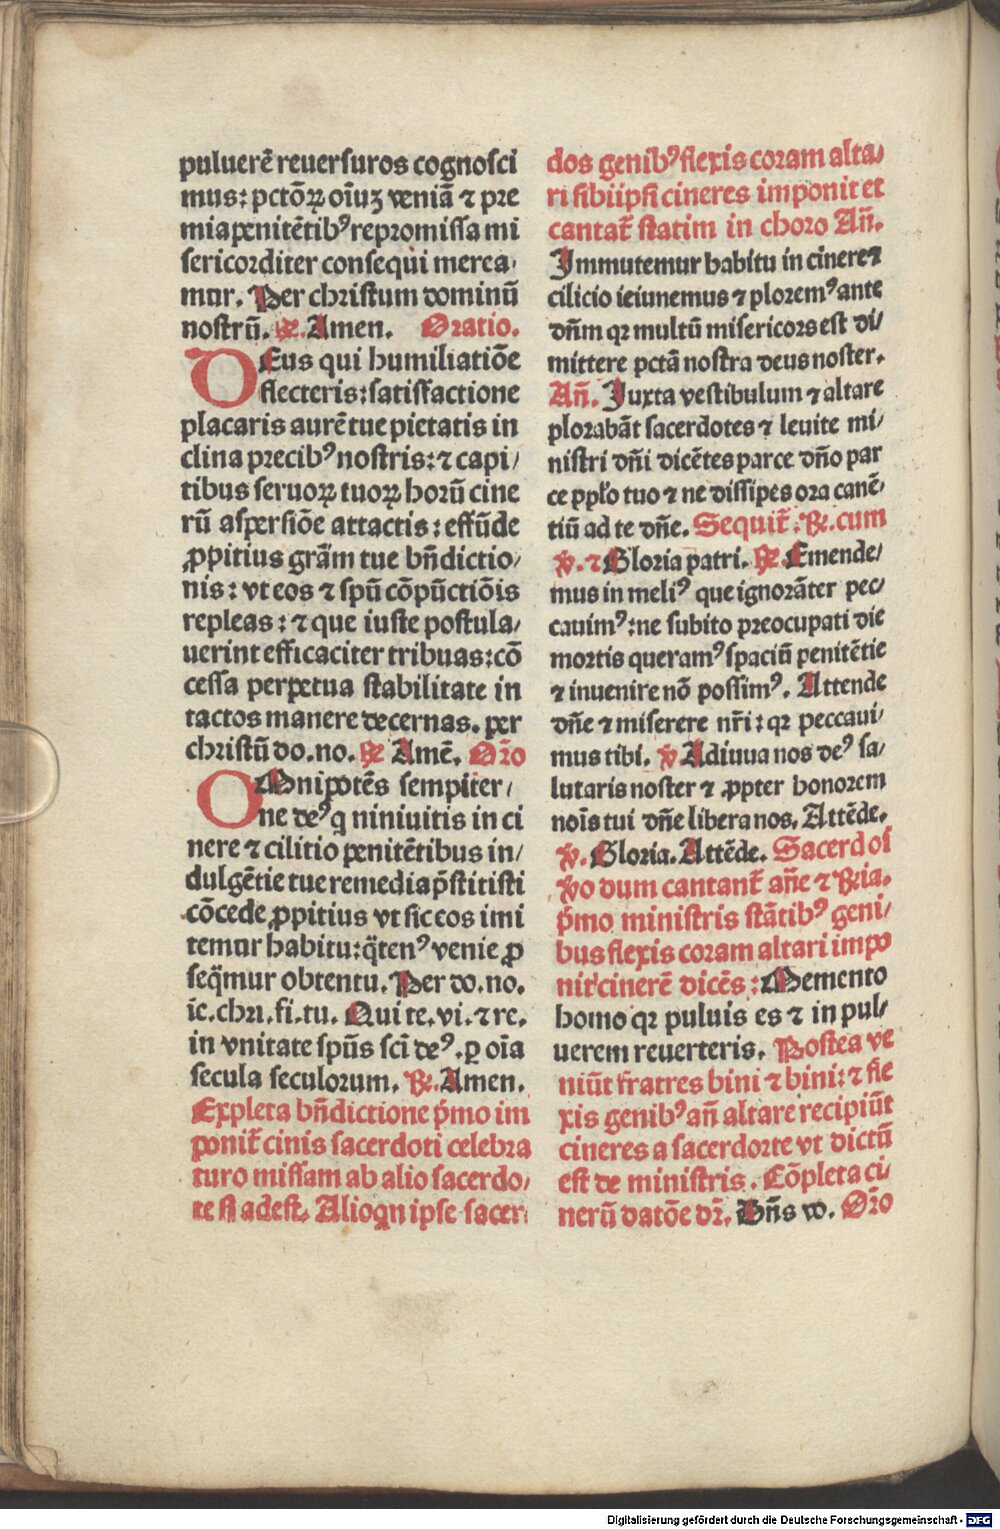 puluerē reuersuros cognosci
mus: pctōꝝ oīuꝫ veniā ⁊ pre
mia penitētibꝰ repromissa mi
sericorditer consequi merea-
mur. Per christum dominū
nostrū. ℟. Amen. Oratio.
DEus qui humiliatiōe
flecteris: satisfactione
placaris aurē tue pietatis in
clina precibꝰ nostris: ⁊ capi/
tibus seruoꝝ tuoꝝ horū cine
rū aspersiōe attactis: effūde
ꝓpitius grām tue bn̄dictio/
nis: vt eos ⁊ spū cōpūctiōis
repleas: ⁊ que iuste postula/
uerint efficaciter tribuas: cō
cessa perpetua stabilitate in
tactos manere decernas. per
christū do. no. ℟ Amē. Or̄o
OMnipotēs sempiter/
ne deꝰ q niniuitis in ci
nere ⁊ cilitio penitētibus in/
dulgētie tue remedia p̄stitisti
cōcede ꝓpitius vt sic eos imi
temur habitu: q̄tenꝰ venie ꝓ
seq̄mur obtentu. Per do. no.
ie̅. chri. fi. tu. Qui te. vi. ⁊ re.
in vnitate spūs sc̄i deꝰ. ꝑ oīa
secula seculorum. ℟. Amen.
Expleta bn̄dictione p̄mo im
ponit̄ cinis sacerdoti celebra
turo missam ab alio sacerdo/
te si adest. Alioqn ipse sacer
dos genibꝰ flexis coram alta/
ri sibiipsi cineres imponit et
cantat̄ statim in choro An̄.
Immutemur habitu in cinere ⁊
cilicio ieiunemus ⁊ ploremꝰ ante
dn̄m qꝛ multū misericors est di/
mittere pctā nostra deus noster.
An̄. Juxta vestibulum ⁊ altare
plorabāt sacerdotes ⁊ leuite mi/
nistri dn̄i dicētes parce dn̄o par
ce pplo tuo ⁊ ne dissipes ora canē/
tiū ad te dn̄e. Sequit̄. ℟. cum
℣. ⁊ Gloria patri. ℟. Emende/
mus in meliꝰ que ignorāter pec/
cauimꝰ: ne subito preocupati die
mortis queramꝰ spaciū penitētie
⁊ inuenire nō possimꝰ. Attende
dn̄e ⁊ miserere nr̄i: qꝛ peccaui/
mus tibi. ℣ Adiuua nos deꝰ sa/
lutaris noster ⁊ ꝓpter honorem
noīs tui dn̄e libera nos. Attēde.
℣. Gloria. Attēde. Sacerdos
℣o dum cantant̄ an̄e ⁊ ℟ia.
p̄mo ministris stātibꝰ geni/
bus flexis coram altari impo
nit cinerē dicēs: Memento
homo qꝛ puluis es ⁊ in pul/
uerem reuerteris. Postea ve
niūt fratres bini ⁊ bini: ⁊ fle
xis genibꝰ an̄ altare recipiūt
cineres a sacerdorte vt dictū
est de ministris. Cōpleta ci/
nerū datōe dr̄. Dn̄s vo. Or̄o
Digitalisierung gefördert durch die Deutsche Forschungsgemeinschaft - DFG